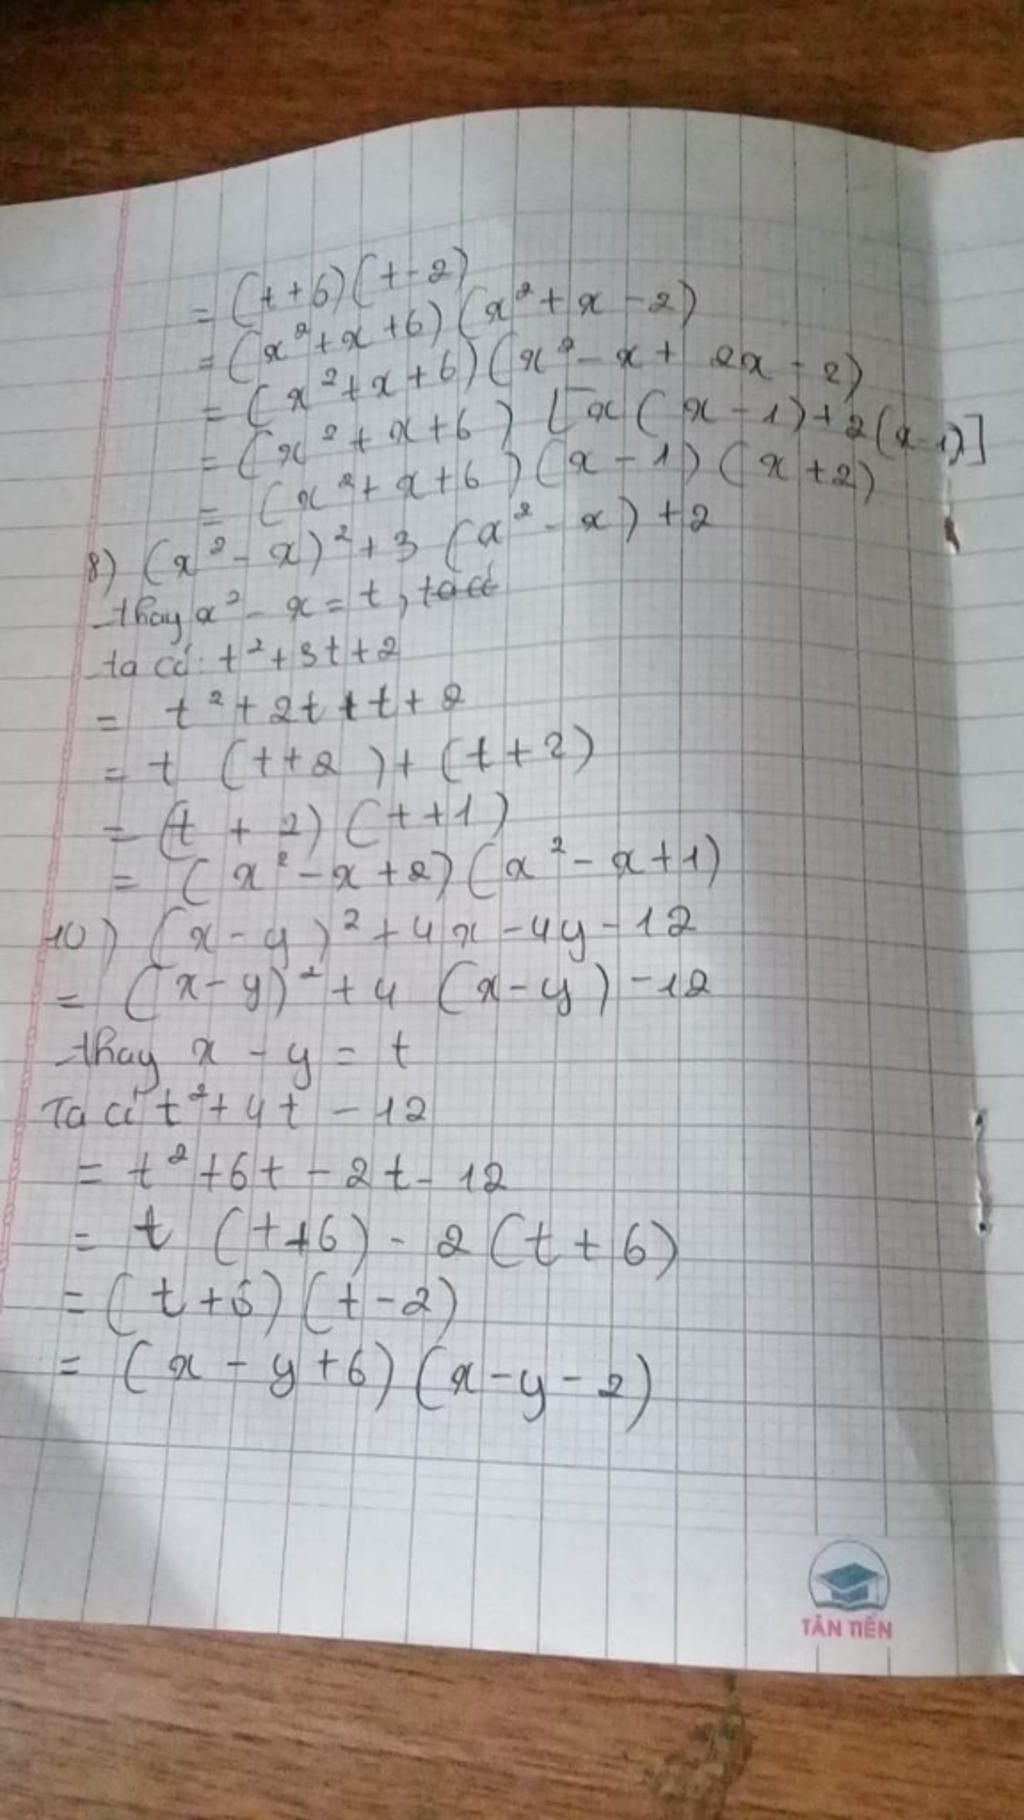 = (t+6)(t-2)
= (x²+x+6)(x²+x-2)
= (x²+x+6)(x²-x+2x-2)
= (x²+x+6)[x(x-1)+2(x-1)]
= (x²+x+6)(x-1)(x+2)
8) (x²-x)²+3(x²-x)+2
thay x²-x=t, ta có
ta có: t²+3t+2
= t²+2t+t+2
= t(t+2)+(t+2)
= (t+2)(t+1)
= (x²-x+2)(x²-x+1)
10) (x-y)²+4x-4y-12
= (x-y)²+4(x-y)-12
thay x-y=t
Ta có t²+4t-12
= t²+6t-2t-12
= t(t+6)-2(t+6)
= (t+6)(t-2)
= (x-y+6)(x-y-2)
TÂN TIẾN